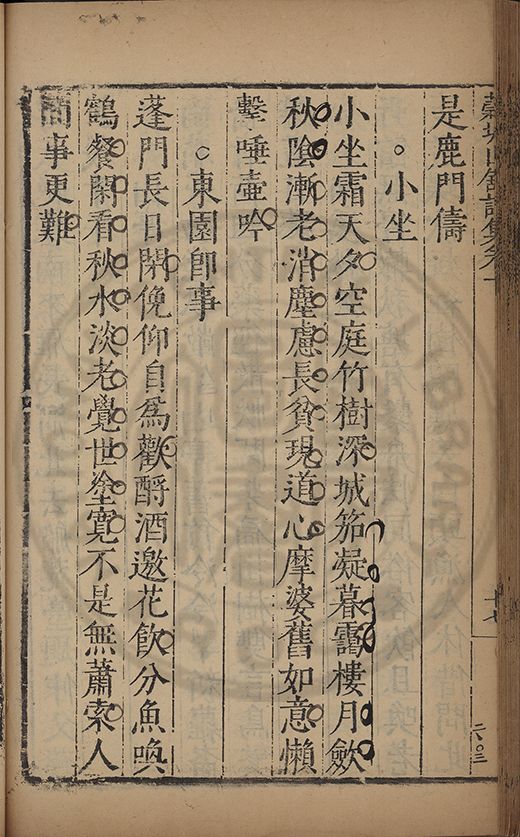 是鹿門儔
○小坐
小坐霜天夕空庭竹樹深城笳凝暮靄樓月斂
秋陰漸老消塵慮長貧現道心摩婆舊如意懶
擊唾壺吟
○東園即事
蓬門長日閑俛仰自爲歡酹酒邀花飲分魚喚
鶴餐閑看秋水淡老覺世塗寬不是無蕭索人
間事更難